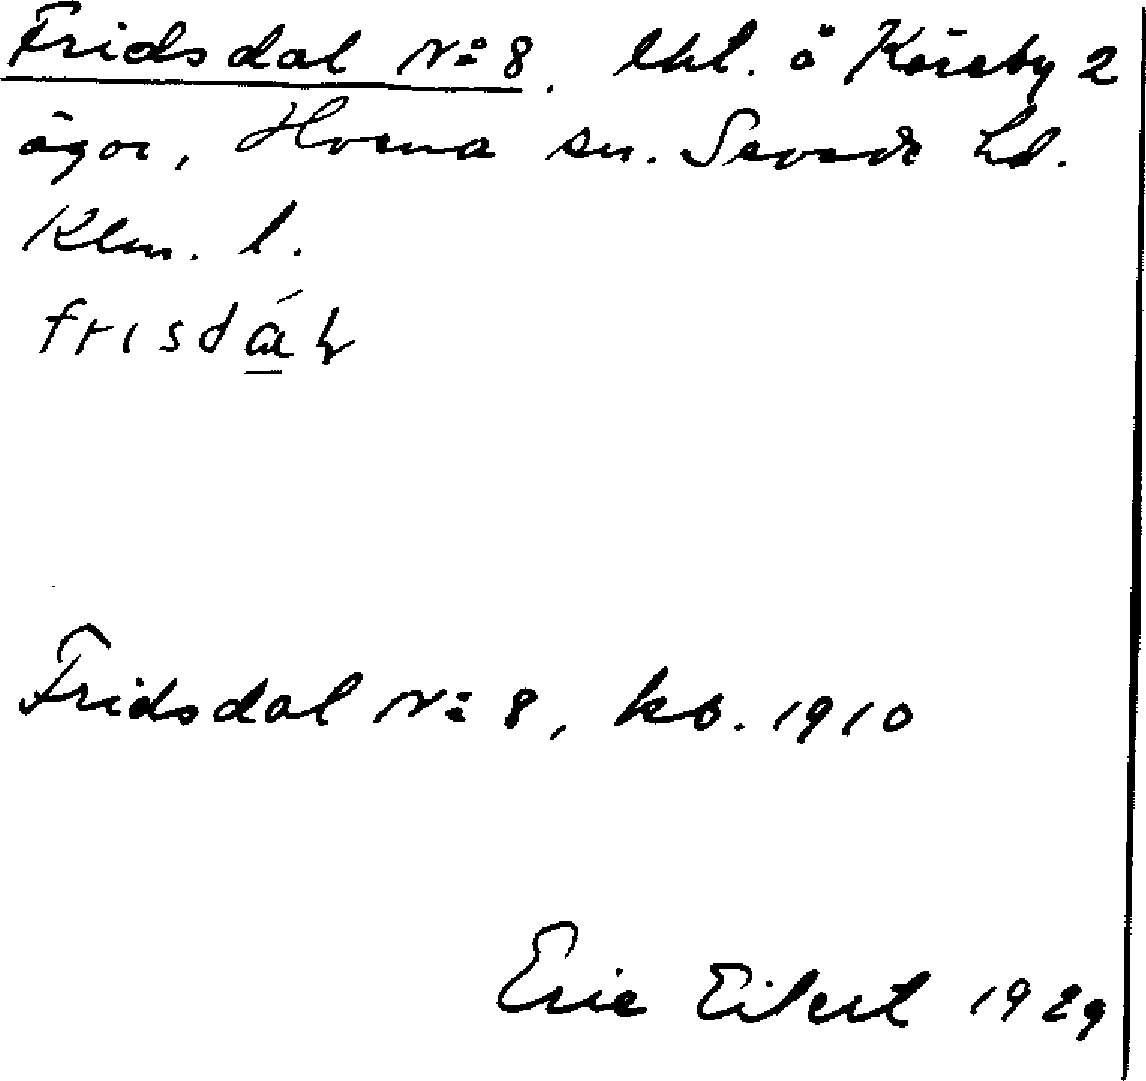 Fridsdal No 8. lht. å Köreby 2
ägor, Hvena sn. Sevede hd.
Klm. l.
frisdál
Fridsdal No 8, kb. 1910
Eric Eilert 1929